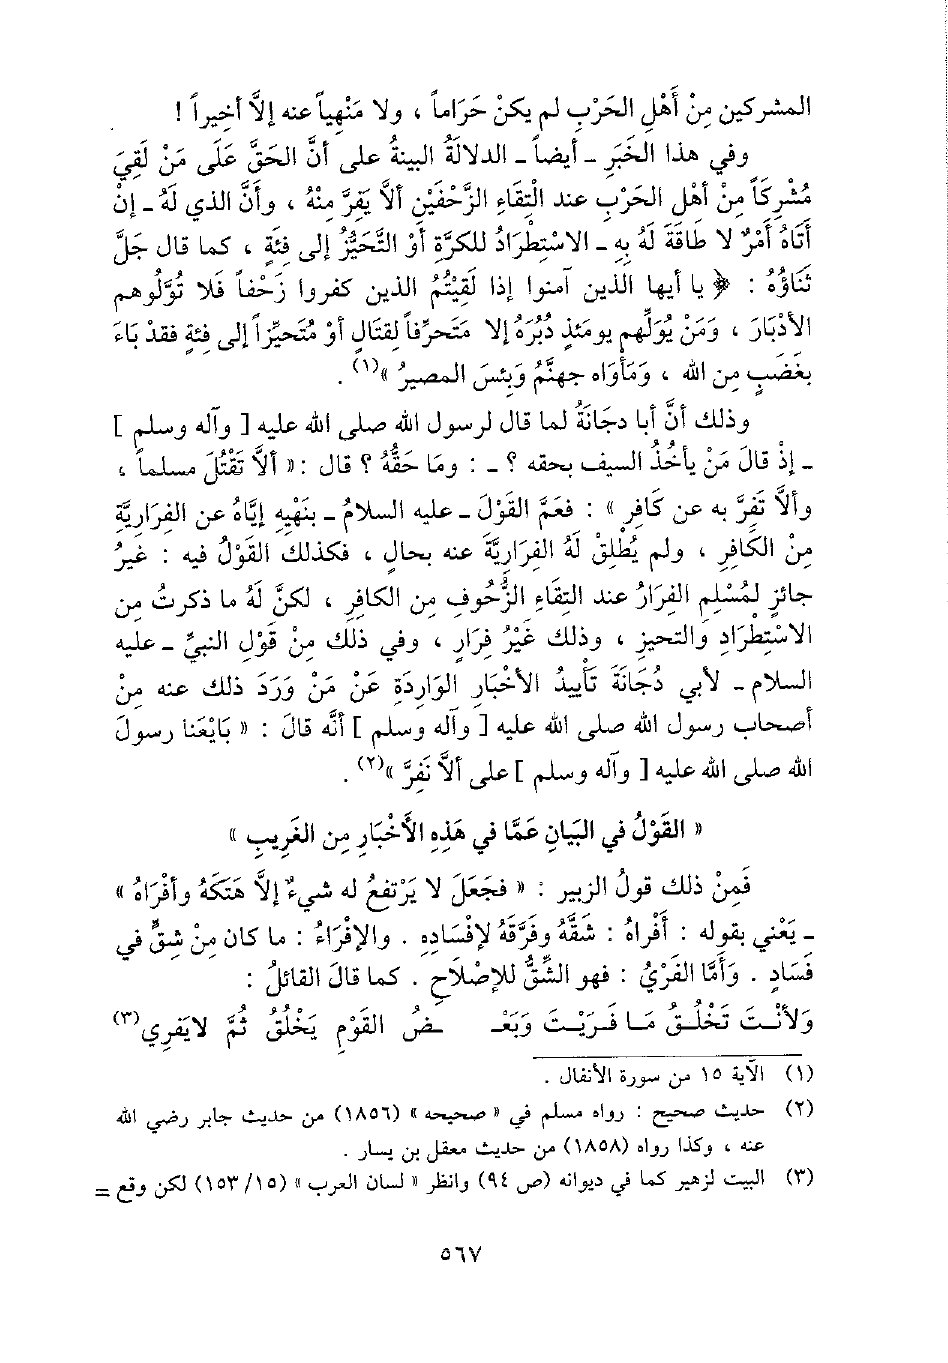 المشركين مِنْ أَهْلِ الحَرْبِ لم يكنْ حَرَاماً ، ولا مَنْهِياً عنه إلاَّ أخيراً !
وفي هذا الخَبَرِ ـ أيضاً ـ الدلالَةُ البينةُ على أنَّ الحَقَّ عَلَى مَنْ لَقِيَ
مُشْرِكَاً مِنْ أهْلِ الحَرْبِ عند الْتِقَاءِ الزَّحْفَيْنِ ألاَّ يَفِرَّ مِنْهُ ، وأَنَّ الذي لَهُ ـ إنْ
أَتَاهُ أمْرٌ لا طَاقَةَ لَهُ بِهِ ـ الاسْتِطْرَادُ للكرَّةِ أوْ التَّحَيُّزُ إلى فِئَةٍ ، كما قال جَلَّ
ثَنَاؤُهُ : ﴿ يا أيها الذين آمنوا إذا لَقِيْتُمُ الذين كفروا زَحْفاً فَلا تُوَلُّوهم
الأدْبَارَ ، وَمَنْ يُوَلِّهم يومئذٍ دُبُرَهُ إلا مَتَحرِّفاً لقتَالٍ أوْ مُتَحيِّزاً إلى فِئةٍ فقدْ بَاءَ
بغَضَبٍ مِن الله ، وَمَأوَاه جهنَّمُ وَبِئسَ المصيرُ »(١) .
وذلك أنَّ أبا دجَانَةُ لما قال لرسول الله صلى الله عليه [ وآله وسلم ]
ـ إذْ قالَ مَنْ يأخُذُ السيف بحقه ؟ ـ : ومَا حَقُّهُ ؟ قال : « ألاَّ تَقْتُلَ مسلماً ،
وألاَّ تَفِرَّ به عن كَافِرٍ » : فعَمَّ القَوْلَ ـ عليه السلامُ ـ بنَهْيِهِ إيَّاهُ عن الفِرَارِيَّةِ
مِنْ الكَافِرِ ، ولم يُطْلِقْ لَهُ الفِرَاريَّةَ عنه بحالٍ ، فكذلك القَوْلُ فيه : غيرُ
جائزٍ لمُسْلِمٍ الفِرَارُ عند التِقَاءِ الزُّحُوفِ مِن الكافِرِ ، لكنَّ لَهُ ما ذكرتُ مِن
الاسْتِطْرَادِ والتحيز ، وذلك غَيْرُ فِرَارٍ ، وفي ذلك مِنْ قَوْلِ النبيِّ ـ عليه
السلام ـ لأبي دُجَانَةَ تَأييدُ الأخْبَارِ الوَارِدَةِ عَنْ مَنْ وَرَدَ ذلك عنه مِنْ
أصحاب رسول الله صلى الله عليه [ وآله وسلم ] أنَّه قالَ : « بَايَعْنا رسولَ
الله صلى الله عليه [ وآله وسلم ] على ألاَّ نَفِرَّ »(٢) .
« القَوْلُ في البَيَانِ عَمَّا في هَذِهِ الأَخْبَارِ مِن الغَرِيبِ »
فَمِنْ ذلك قولُ الزبير : « فجَعَلَ لا يَرْتفعُ له شيءٌ إلاَّ هَتَكَهُ وأفْرَاهُ »
ـ يَعْني بقوله : أفْراهُ : شقَّهُ وفَرَّقَهُ لإفْسَادِهِ . والإفْرَاءُ : ما كان مِنْ شقٍّ في
فَسَادٍ . وَأمَّا الفَرْيُ : فهو الشَّقُّ للإصْلَاحِ . كما قالَ القائلُ :
وَلأنْـتَ تَخْلُـقُ مَـا فَـرَيْـتَ وَبَعْـ ـضُ القَوْمِ يَخْلُقُ ثُمَّ لايَفرِي(٣)
(١) الآية ١٥ من سورة الأنفال .
(٢) حديث صحيح : رواه مسلم في « صحيحه » (١٨٥٦) من حديث جابر رضي الله
عنه ، وكذا رواه (١٨٥٨) من حديث معقل بن يسار .
(٣) البيت لزهير كما في ديوانه (ص ٩٤) وانظر « لسان العرب » (١٥/ ١٥٣) لكن وقع =
٥٦٧